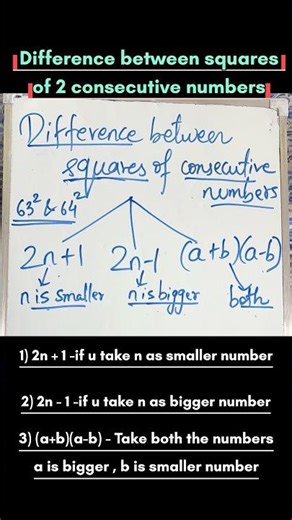 Difference between squares
of 2 consecutive numbers
Difference between
squares of consecutive
numbers
63² & 64²
2n+1 2n-1 (a+b)(a-b)
n is smaller n is bigger both
1) 2n + 1 -if u take n as smaller number
2) 2n - 1 -if u take n as bigger number
3) (a+b)(a-b) - Take both the numbers
a is bigger , b is smaller number